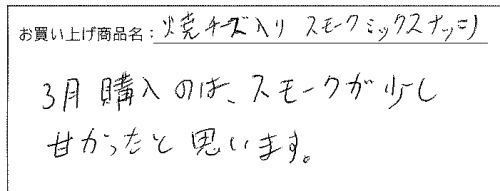 お買い上げ商品名: 焼チーズ入り スモークミックスナッツ
3月購入のは、スモークが少し
甘かったと思います。